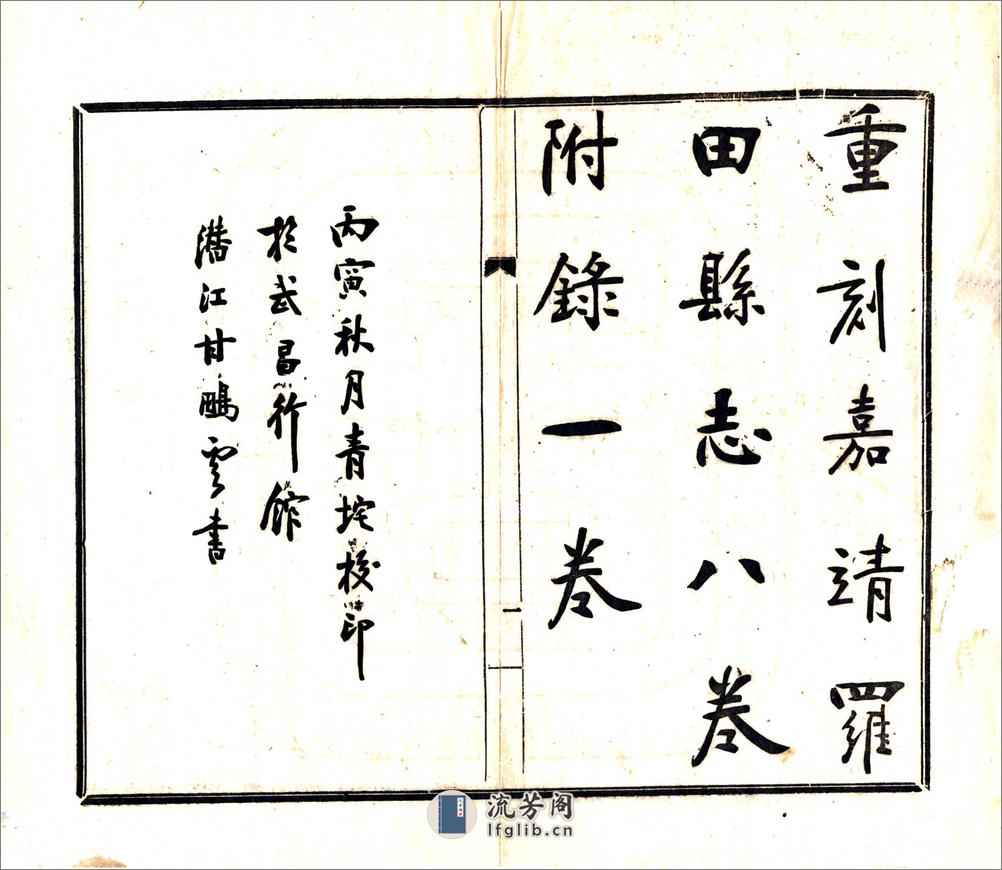 重刻嘉靖羅
田縣志八卷
附錄一卷
一
丙寅秋月青垞校印
於武昌行館
潛江甘鵬雲書
流芳阁
lfglib.cn